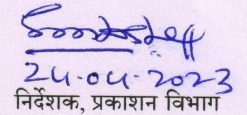 24-04-2023
निर्देशक, प्रकाशन विभाग